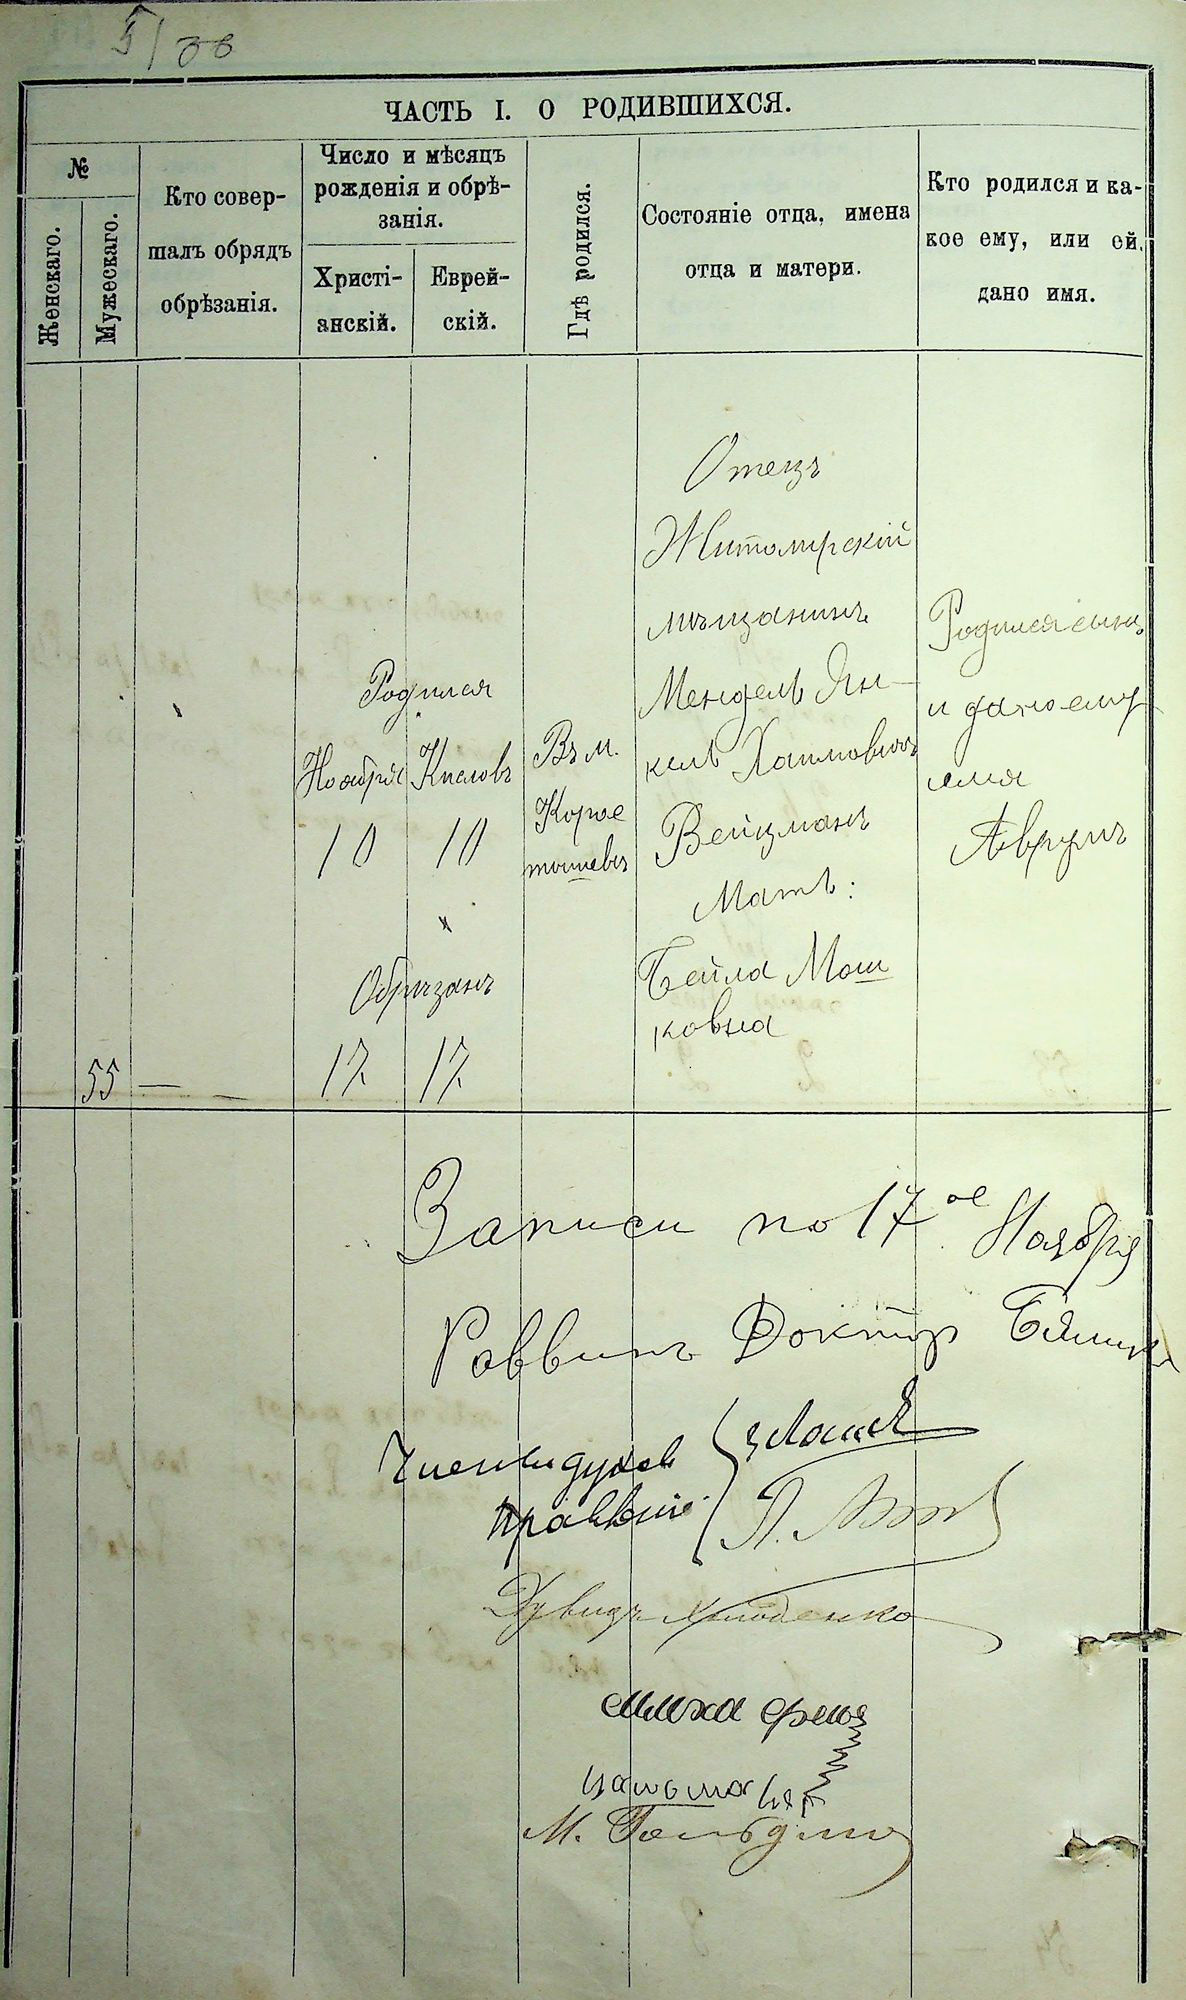 ЧАСТЬ I. О РОДИВШИХСЯ.
№
Женскаго.
Мужескаго.
Кто совер-
шалъ обрядъ
обрѣзанія.
Число и мѣсяцъ
рожденія и обрѣ-
занія.
Христі-
анскій.
Еврей-
скій.
Гдѣ родился.
Состояніе отца, имена
отца и матери.
Кто родился и ка-
кое ему, или ей,
дано имя.
55
—
Родился
Ноября
10
Кислевъ
10
Обрѣзанъ
17.
17.
Въ м.
Корос
тышевъ
Отецъ
Житомирскій
мѣщанинъ
Мендель Ян-
кель Хаимовичъ
Вейцманъ
Мать:
Бейла Мош
ковна
Родился сынъ
и дано ему
имя
Аврумъ
Записи по 17 ое Ноября
Раввинъ Докторъ
Члены духов
правленія
Дувидъ Холоденко
М.